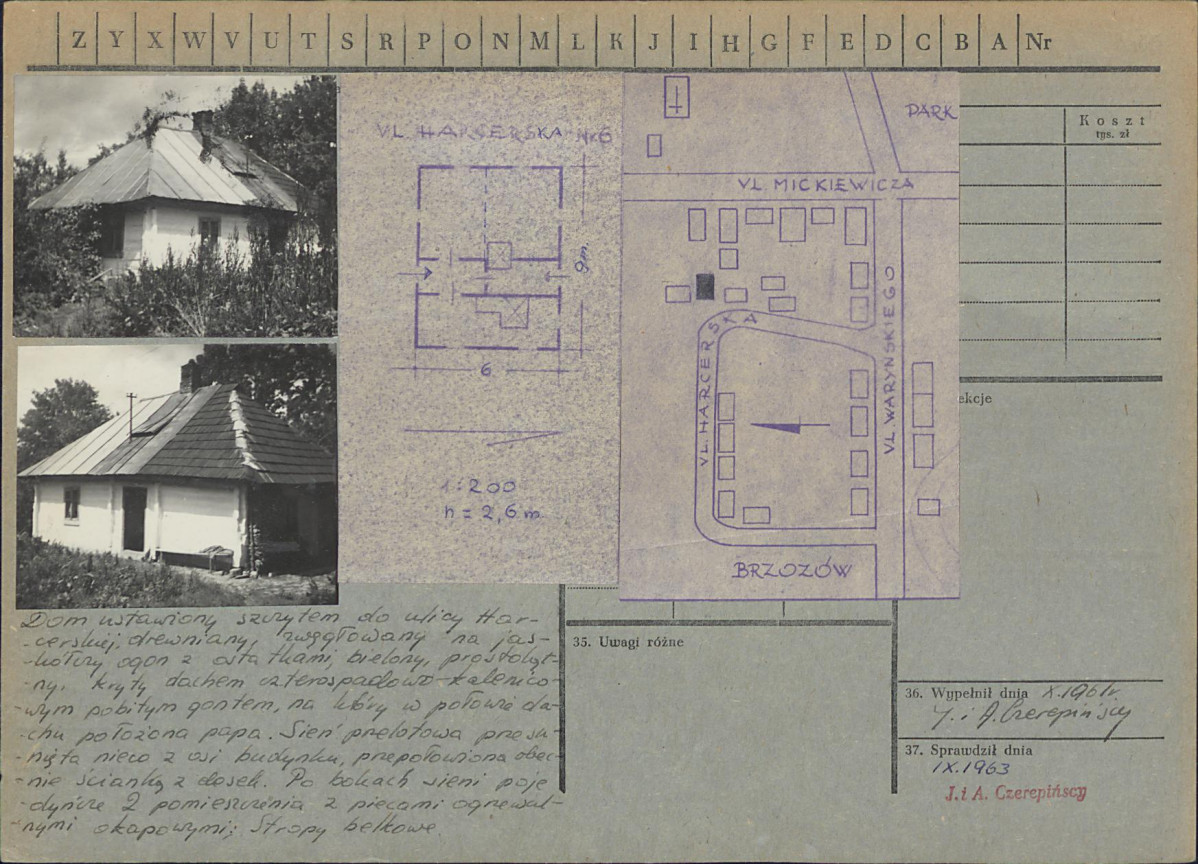 Z Y X W V U T S R P O N M L K J I H G F E D C B A Nr
Koszt
tys. zł
ekcje
UL. HARCERSKA Nr 6
9m.
6
1:200
h = 2,6 m.
PARK
UL. MICKIEWICZA
UL. HARCERSKA
UL. WARYŃSKIEGO
BRZOZÓW
Dom ustawiony szczytem do ulicy Har-
-cerskiej, drewniany, zwęgłowany na jas-
-kółczy ogon z ostatkami, bielony, prostokąt-
-ny, kryty dachem czterospadowo-kalenico-
-wym pobitym gontem, na który w połowie da-
-chu położona papa. Sień przelotowa przesu-
-nięta nieco z osi budynku, przepołowiona obec-
-nie ścianką z desek. Po bokach sieni poje
-dyńcze 2 pomieszczenia z piecami ogrzewal-
-nymi okapowymi; Stropy belkowe.
35. Uwagi różne
36. Wypełnił dnia X.1961r.
J. i A. Czerepińscy
37. Sprawdził dnia
IX.1963
J. i A. Czerepińscy